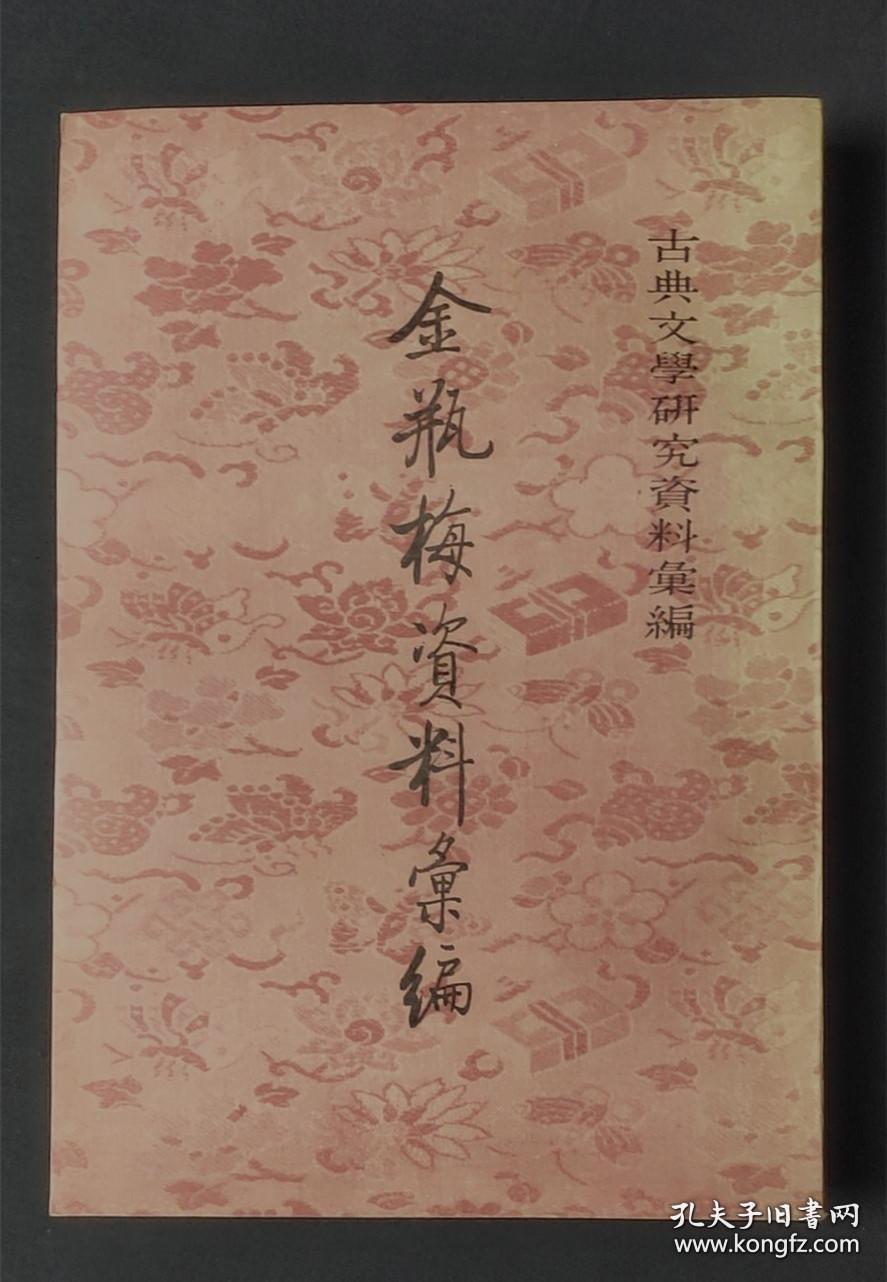 古典文學研究資料彙編
金瓶梅資料彙編
孔夫子旧書网
www.kongfz.com